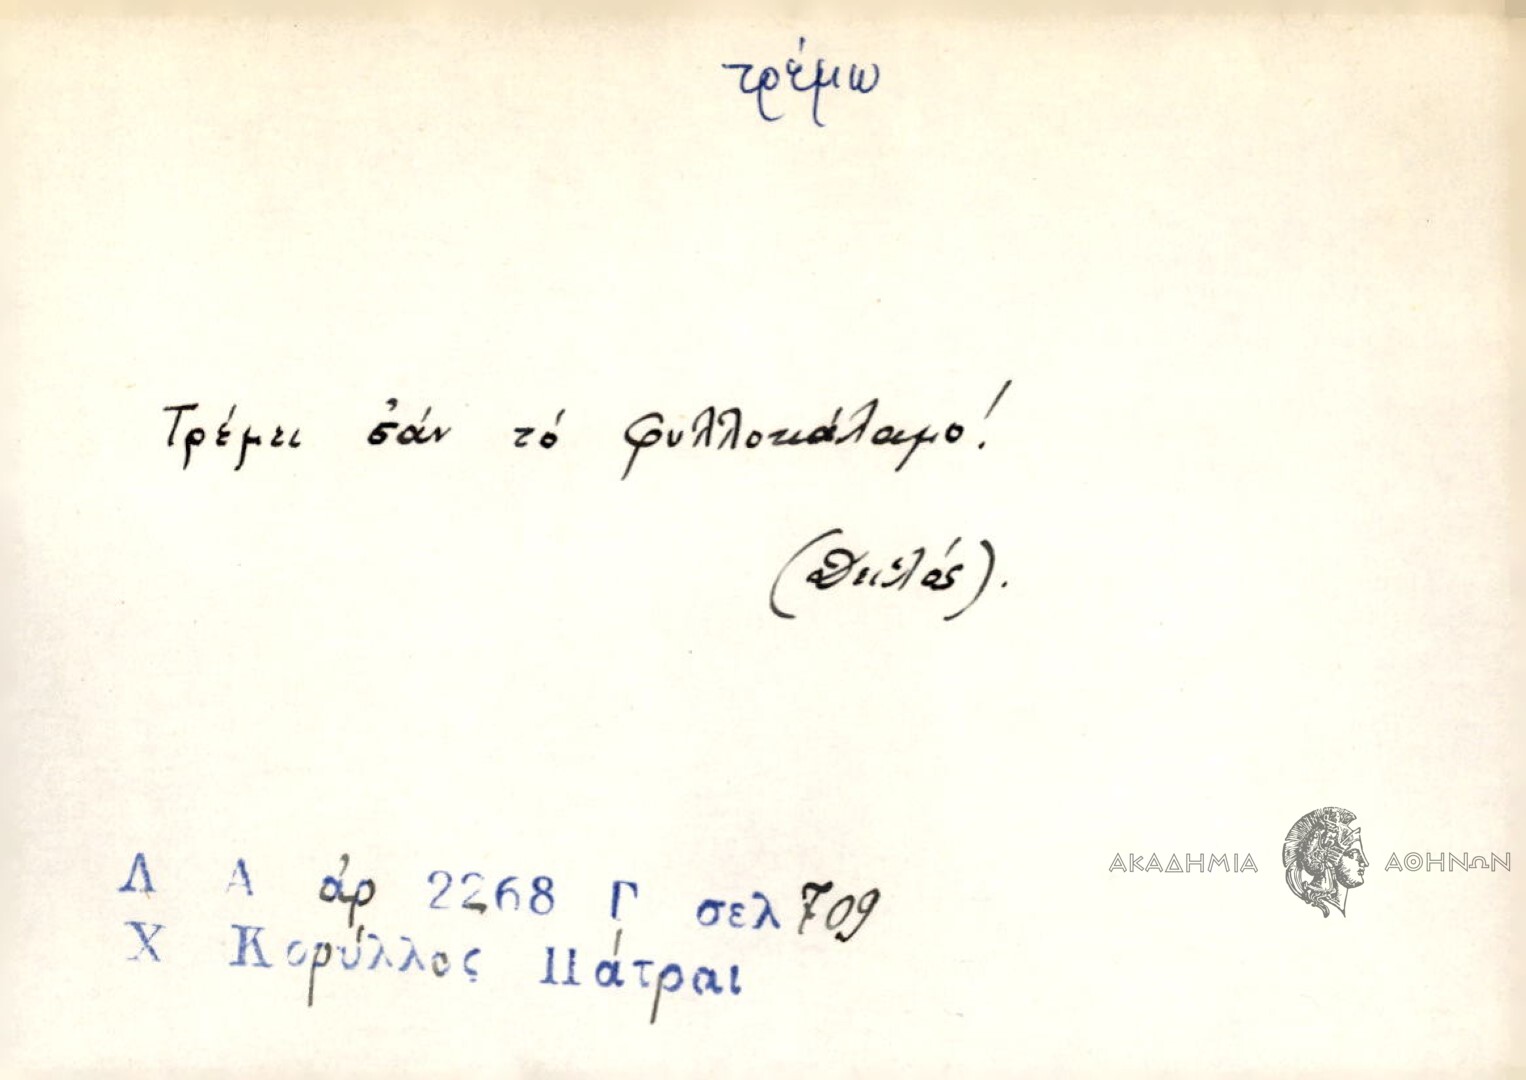 τρέμω
Τρέμει σάν τό φυλλοκάλαμο!
(Δειλός).
Λ Α άρ 2268 Γ σελ 709
Χ Κορύλλος Πάτραι
ΑΚΑΔΗΜΙΑ ΑΘΗΝΩΝ